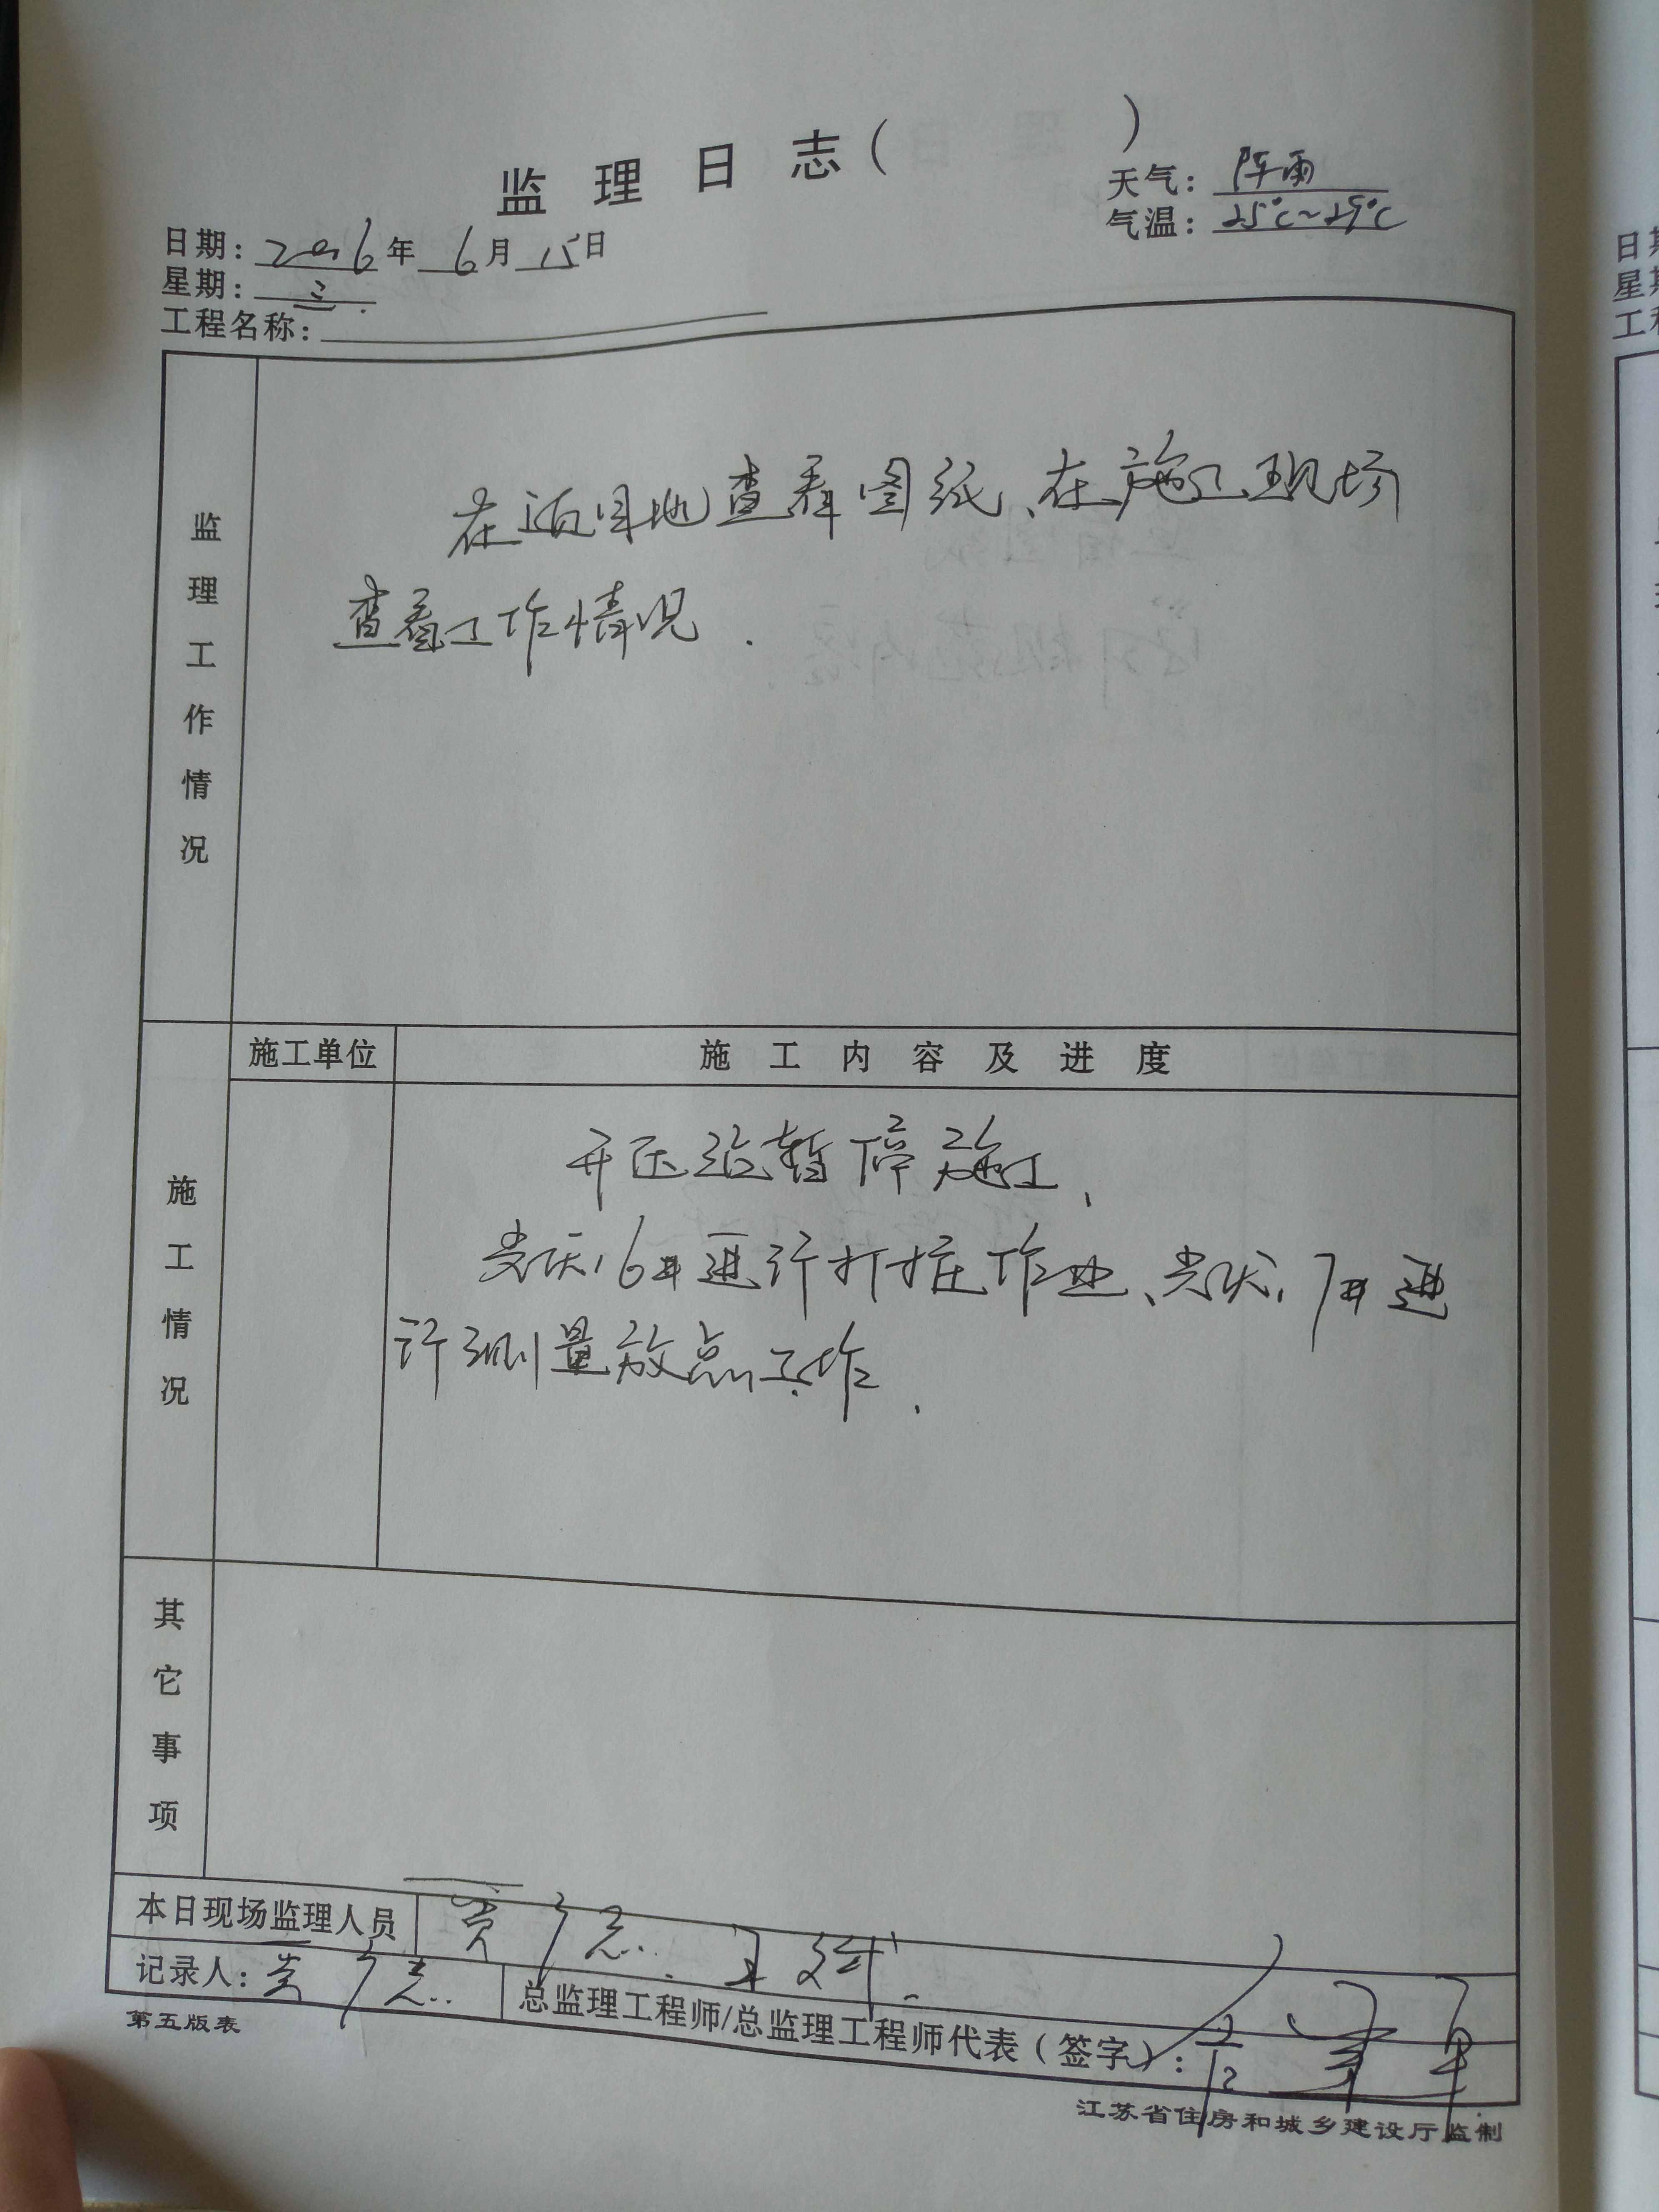 监理日志( )
天气: 阵雨
气温: 25℃~29℃
日期: 2016年 6月 15日
星期: 三.
工程名称:
监理工作情况
在项目地查看图纸、在施工现场
查看工作情况.
施工单位
施工内容及进度
施工情况
开压站暂停施工、
光伏16#进行打桩作业、光伏17#进
行测量放点工作.
其它事项
本日现场监理人员
记录人:
总监理工程师/总监理工程师代表(签字):
第五版表
江苏省住房和城乡建设厅监制
日期
星期
工程